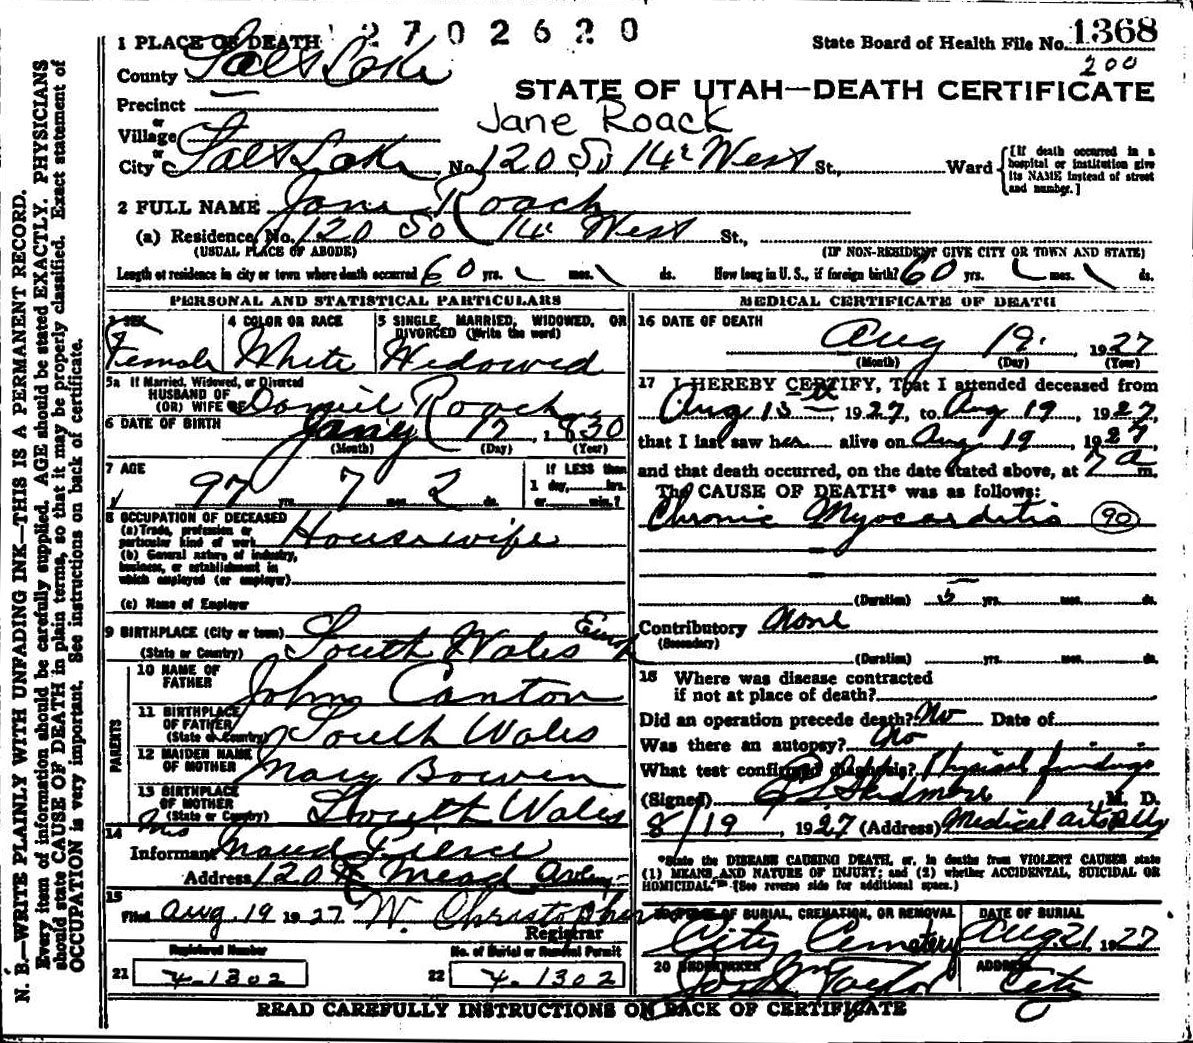 2702620
1 PLACE OF DEATH
State Board of Health File No. 1368
200
County Salt Lake
STATE OF UTAH—DEATH CERTIFICATE
Precinct
or
Village
Jane Roack
or
City Salt Lake No. 120 So 14 West St., Ward
[If death occurred in a hospital or institution give its NAME instead of street and number.]
2 FULL NAME Jane Roach
(a) Residence, No. 120 So 14 West St.,
(USUAL PLACE OF ABODE)
(IF NON-RESIDENT GIVE CITY OR TOWN AND STATE)
Length of residence in city or town where death occurred 60 yrs. mos. ds. How long in U. S., if foreign birth? 60 yrs. mos. ds.
PERSONAL AND STATISTICAL PARTICULARS
3 SEX
Female
4 COLOR OR RACE
White
5 SINGLE, MARRIED, WIDOWED, OR
DIVORCED (Write the word)
Widowed
5a If Married, Widowed, or Divorced
HUSBAND OF
(OR) WIFE OF Daniel Roach
6 DATE OF BIRTH Jany 17, 1830
(Month) (Day) (Year)
7 AGE
97 yrs. 7 mos. 2 ds.
If LESS than
1 day, hrs.
or min.?
8 OCCUPATION OF DECEASED
(a) Trade, profession or
particular kind of work Housewife
(b) General nature of industry,
business, or establishment in
which employed (or employer)
(c) Name of Employer
9 BIRTHPLACE (City or town)
(State or Country) South Wales
10 NAME OF
FATHER John Canton
11 BIRTHPLACE
OF FATHER
(State or Country) South Wales
12 MAIDEN NAME
OF MOTHER Mary Bowen
13 BIRTHPLACE
OF MOTHER
(State or Country) South Wales
PARENTS
14 Mrs
Informant Maud Pierce
Address 120 Mead
15
Filed Aug 19 1927 W. Christopher
Registrar
Registered Number
21 4-1302
No. of Burial or Removal Permit
22 4-1302
MEDICAL CERTIFICATE OF DEATH
16 DATE OF DEATH
Aug 19. 1927
(Month) (Day) (Year)
17 I HEREBY CERTIFY, That I attended deceased from
Aug 15 th 1927, to Aug 19, 1927,
that I last saw her alive on Aug 19, 1927
and that death occurred, on the date stated above, at 7 a m.
The CAUSE OF DEATH* was as follows:
Chronic Myocarditis 90
(Duration) 5 yrs. mos. ds.
Contributory None
(Secondary)
(Duration) yrs. mos. ds.
18 Where was disease contracted
if not at place of death?
Did an operation precede death? No Date of
Was there an autopsy? No
What test confirmed diagnosis? Physical findings
(Signed) Skidmore M. D.
8/19, 1927 (Address) Medical arts
*State the DISEASE CAUSING DEATH, or, in deaths from VIOLENT CAUSES state
(1) MEANS AND NATURE OF INJURY; and (2) whether ACCIDENTAL, SUICIDAL OR
HOMICIDAL. (See reverse side for additional space.)
19 PLACE OF BURIAL, CREMATION, OR REMOVAL
City Cemetery
DATE OF BURIAL
Aug. 21, 1927
20 UNDERTAKER
Taylor
ADDRESS
City
READ CAREFULLY INSTRUCTIONS ON BACK OF CERTIFICATE
N. B.—WRITE PLAINLY WITH UNFADING INK—THIS IS A PERMANENT RECORD.
Every item of information should be carefully supplied. AGE should be stated EXACTLY. PHYSICIANS
should state CAUSE OF DEATH in plain terms, so that it may be properly classified. Exact statement of
OCCUPATION is very important. See instructions on back of certificate.